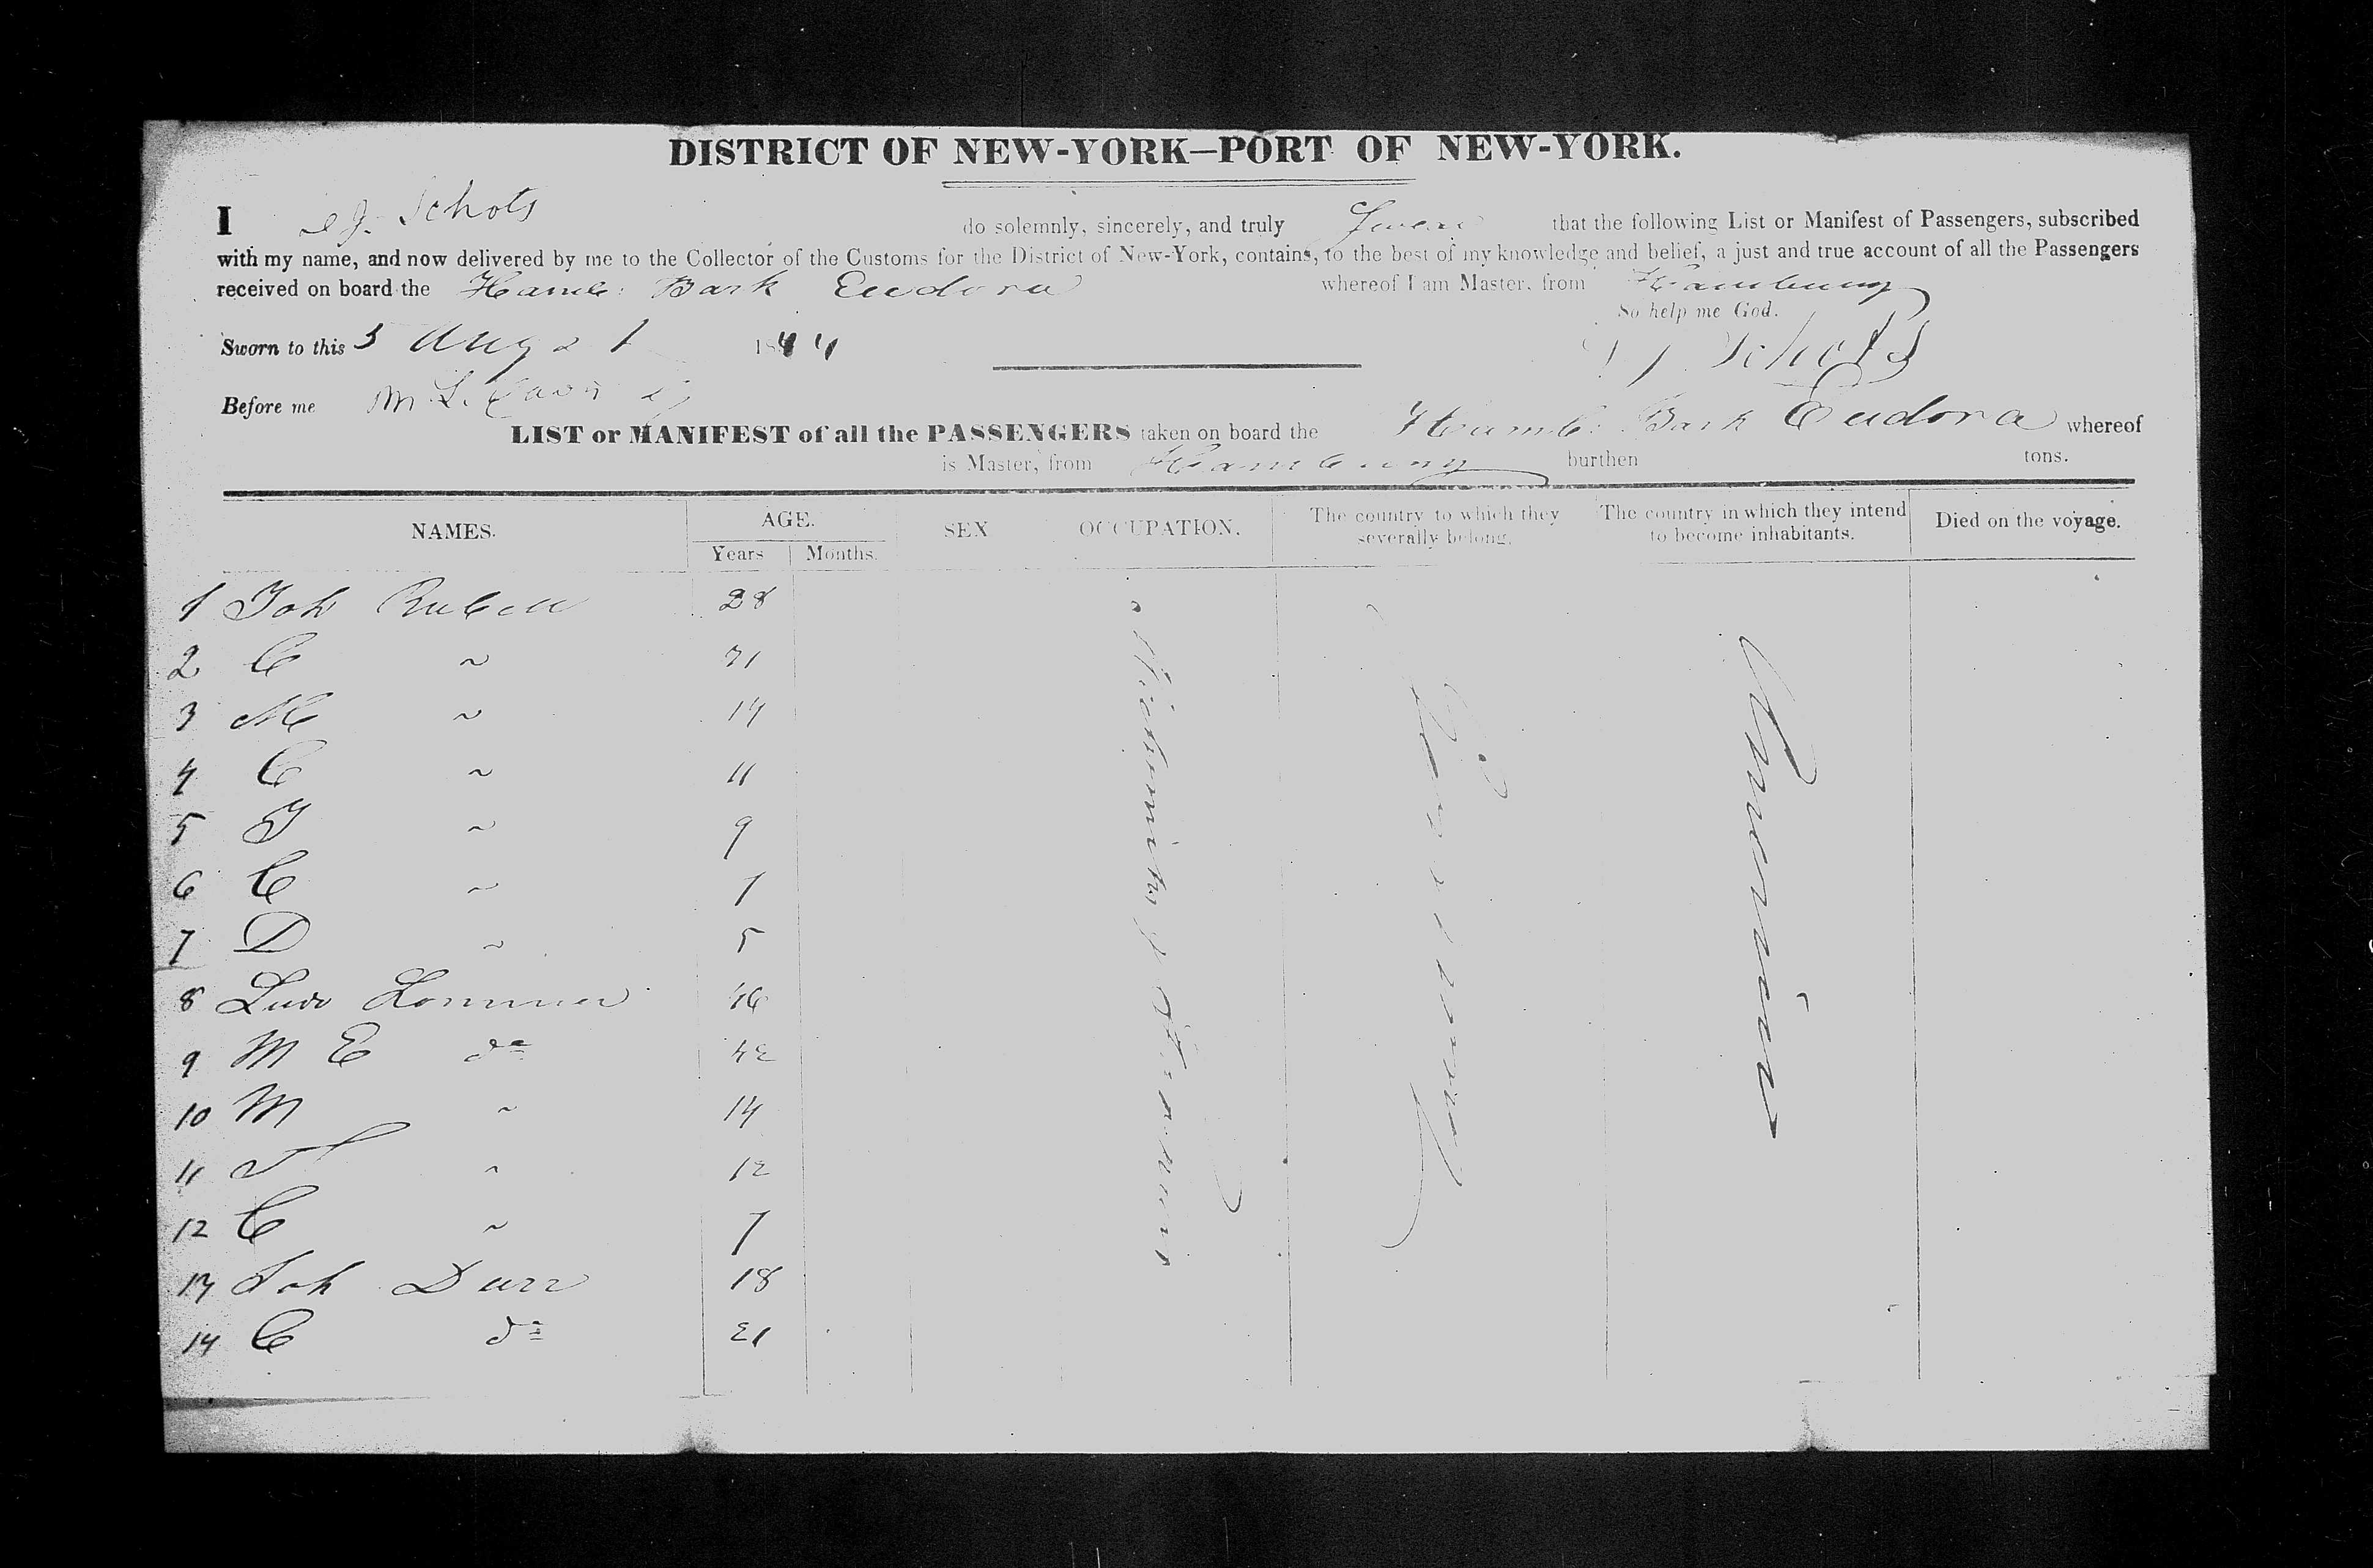 DISTRICT OF NEW-YORK—PORT OF NEW-YORK.
I Schots do solemnly, sincerely, and truly Swear that the following List or Manifest of Passengers, subscribed
with my name, and now delivered by me to the Collector of the Customs for the District of New-York, contains, to the best of my knowledge and belief, a just and true account of all the Passengers
received on board the Hamb: Bark Eudora whereof I am Master, from Hamburg
So help me God.
Sworn to this 5 Augst 1844
Schots
Before me
LIST or MANIFEST of all the PASSENGERS taken on board the Hamb: Bark Eudora whereof
is Master, from Hamburg burthen tons.
NAMES. AGE. SEX OCCUPATION. The country to which they severally belong. The country in which they intend to become inhabitants. Died on the voyage.
Years Months.
1 Joh 28
2 C ~
3 M ~ 14
4 C ~ 11
5 J ~ 9
6 C ~ 7
7 D ~ 5
8 46
9 M E do 42
10 M ~ 14
11 ~ 12
12 C ~ 7
13 Joh Durr 18
14 C do 21
Germany
America